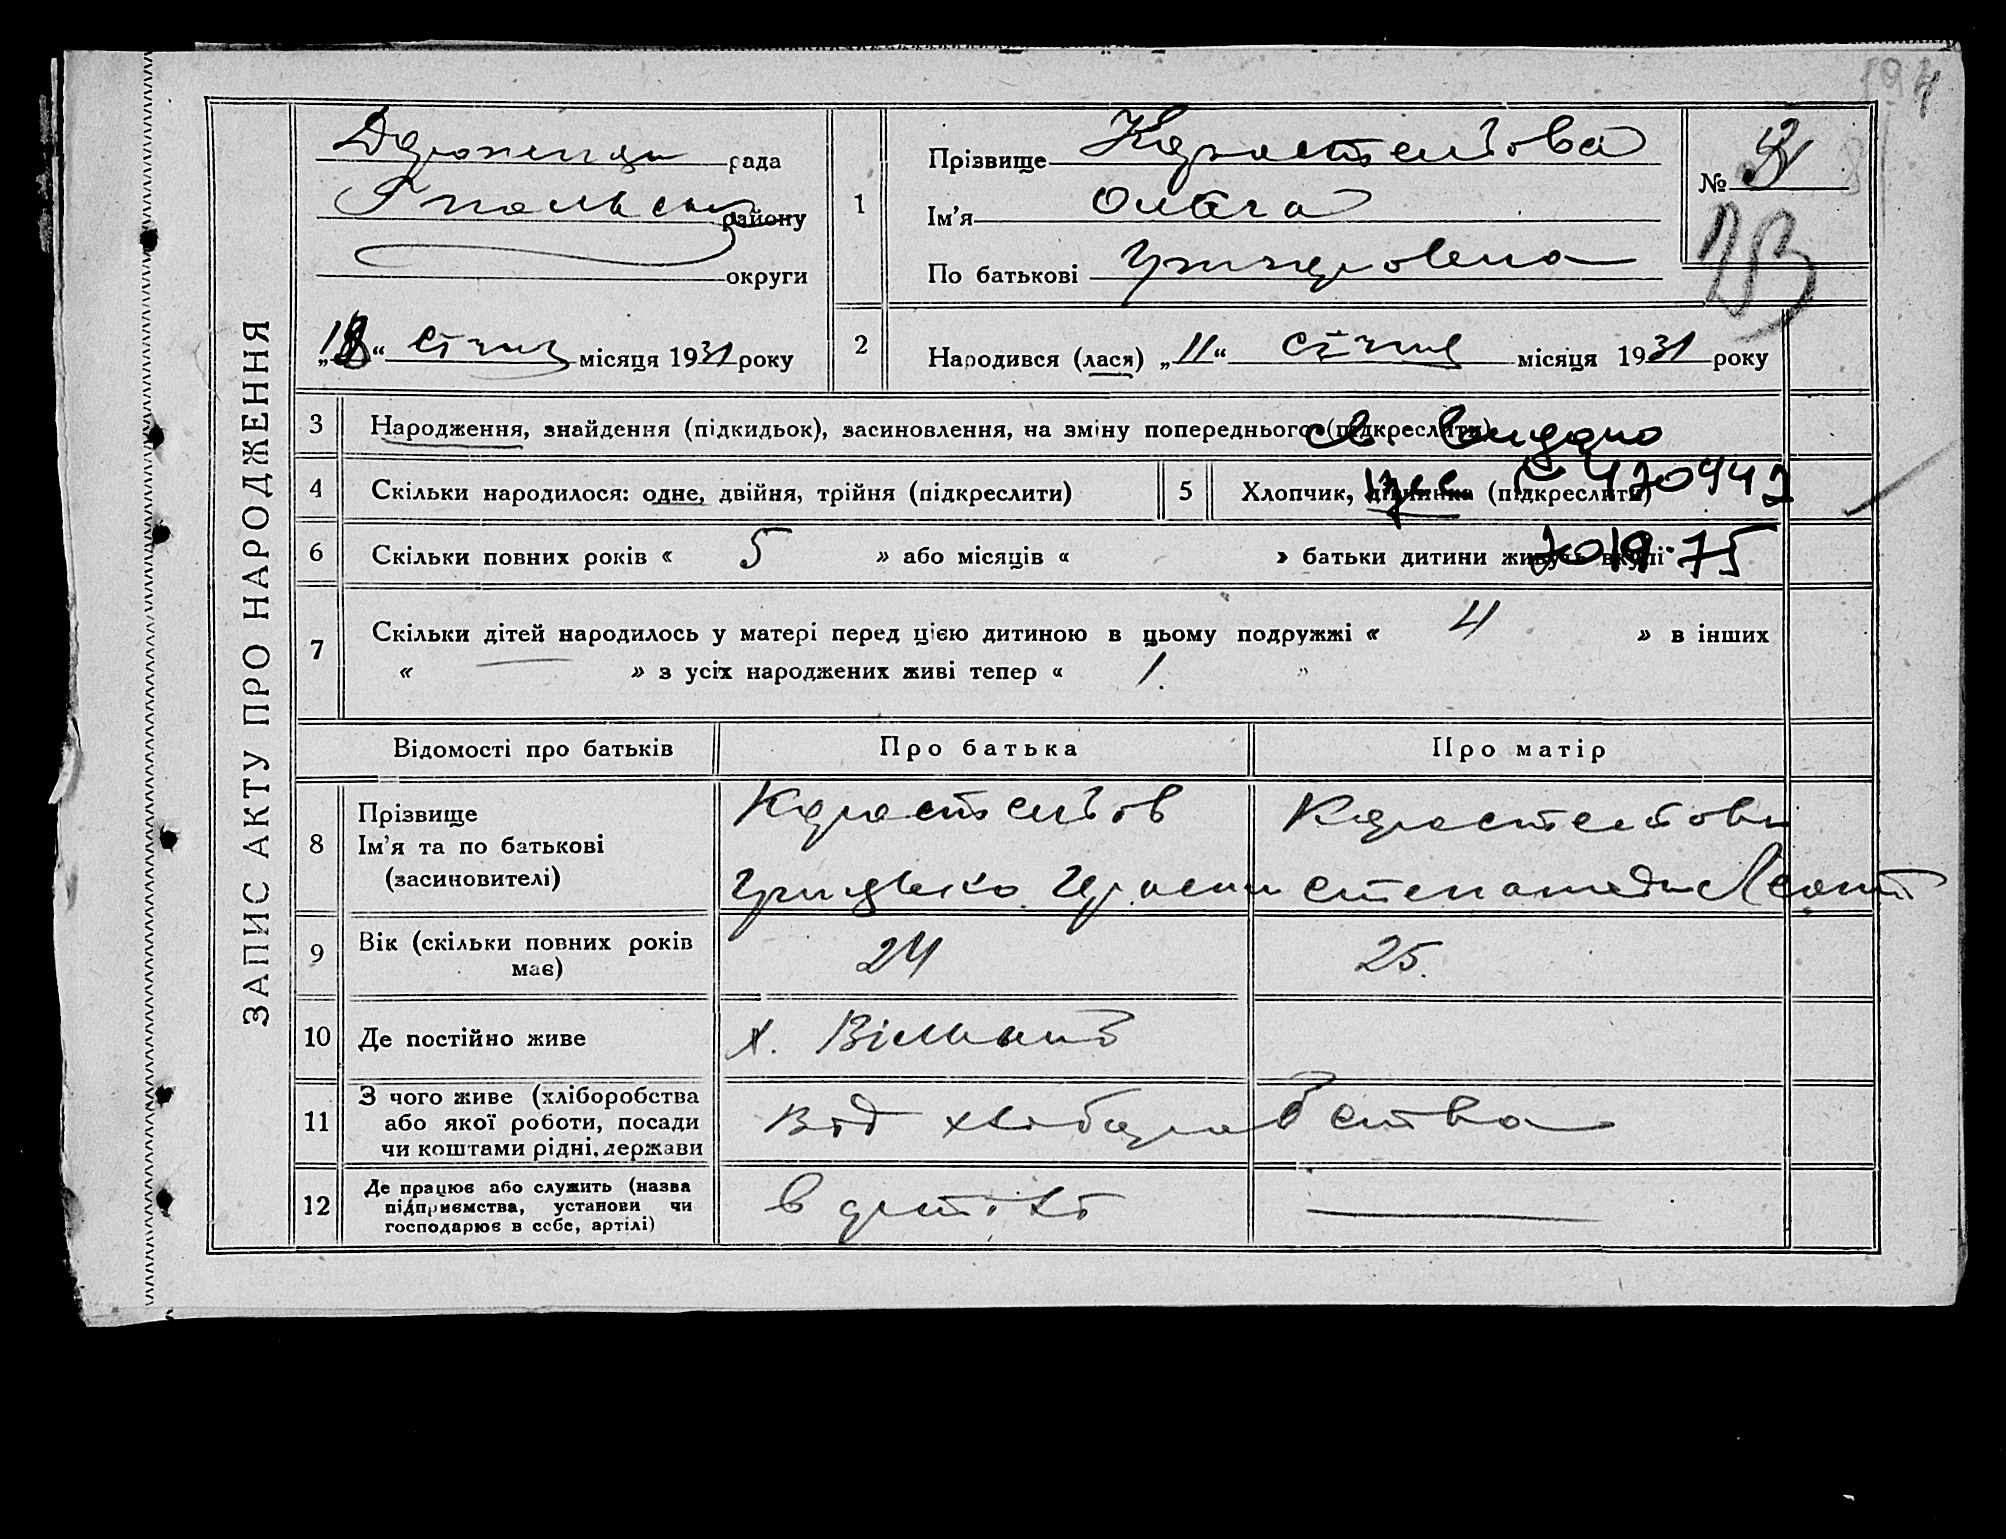 ЗАПИС АКТУ ПРО НАРОДЖЕННЯ
рада
району
округи
"18" січня місяця 1931 року
1
Прізвище Коростельова
Ім'я Ольга
По батькові
№ 3
2
Народився (лася) „11“ січня місяця 1931 року
3
Народження, знайдення (підкидьок), засиновлення, на зміну попереднього (підкреслити)
4
Скільки народилося: одне, двійня, трійня (підкреслити)
5
Хлопчик, дівчинка (підкреслити)
420442
6
Скільки повних років « 5 » або місяців « » батьки дитини живуть вкупі
75
7
Скільки дітей народилось у матері перед цією дитиною в цьому подружжі « 4 » в інших
« — » з усіх народжених живі тепер « 1. »
Відомості про батьків
Про батька
Про матір
8
Прізвище
Ім'я та по батькові
(засиновителі)
Коростельов
Коростельова
9
Вік (скільки повних років
має)
24
25.
10
Де постійно живе
х.
11
З чого живе (хліборобства
або якої роботи, посади
чи коштами рідні, держави
Від хліборобства
12
Де працює або служить (назва
підприємства, установи чи
господарює в себе, артілі)
в артілі
—